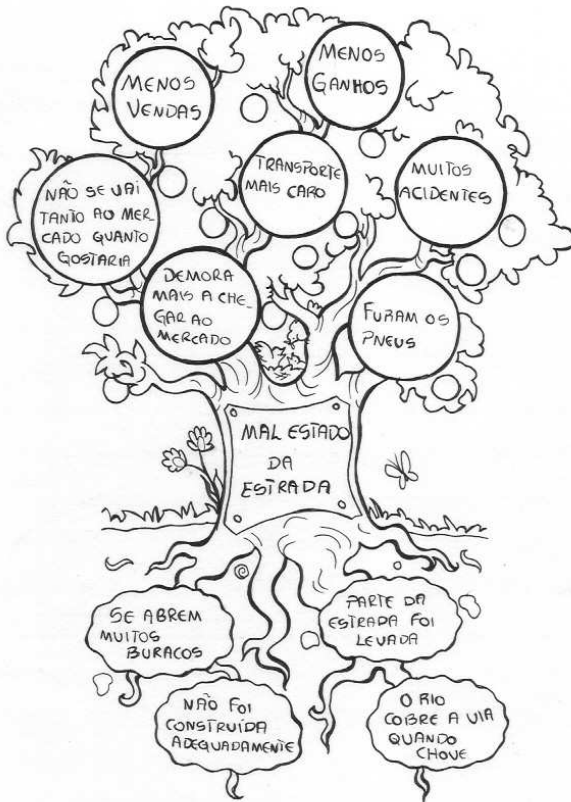 MENOS
VENDAS
MENOS
GANHOS
NÃO SE VAI
TANTO AO MER
CADO QUANTO
GOSTARIA
TRANSPORTE
MAIS CARO
MUITOS
ACIDENTES
DEMORA
MAIS A CHE_
GAR AO
MERCADO
FURAM OS
PNEUS
MAL ESTADO
DA
ESTRADA
SE ABREM
MUITOS
BURACOS
PARTE DA
ESTRADA FOI
LEVADA
NÃO FOI
CONSTRUÍDA
ADEQUADAMENTE
O RIO
COBRE A VIA
QUANDO
CHOVE